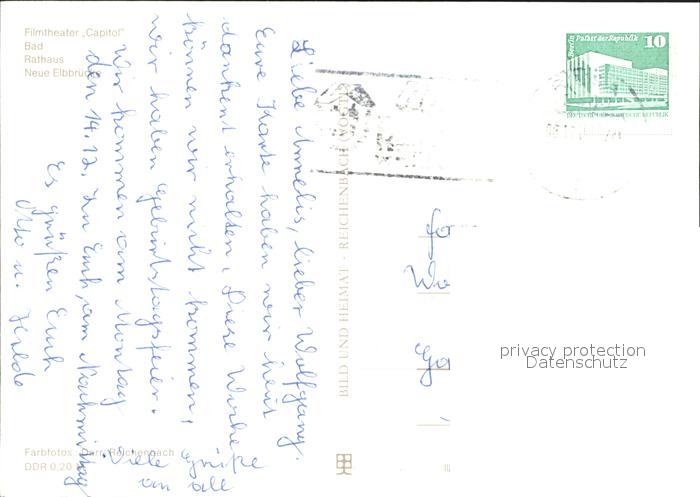 Filmtheater „Capitol"
Bad
Rathaus
Neue Elbbrücke
Liebe Annelis, lieber Wolfgang.
Eure Karte haben wir heut
dankent erhalten, Diese Woche
können wir nicht kommen,
wir haben Geburtstagsfeier.
Wir kommen am Montag
den 14.12. zu Euch, am Nachmittag
Es grüßen Euch
Otto u. Hilde
Viele Grüße
an alle
BILD UND HEIMAT · REICHENBACH (VOGTL)
Berlin Palast der Republik
10
DEUTSCHE DEMOKRATISCHE REPUBLIK
privacy protection
Datenschutz
Farbfotos: Darr, Reichenbach
DDR 0,20